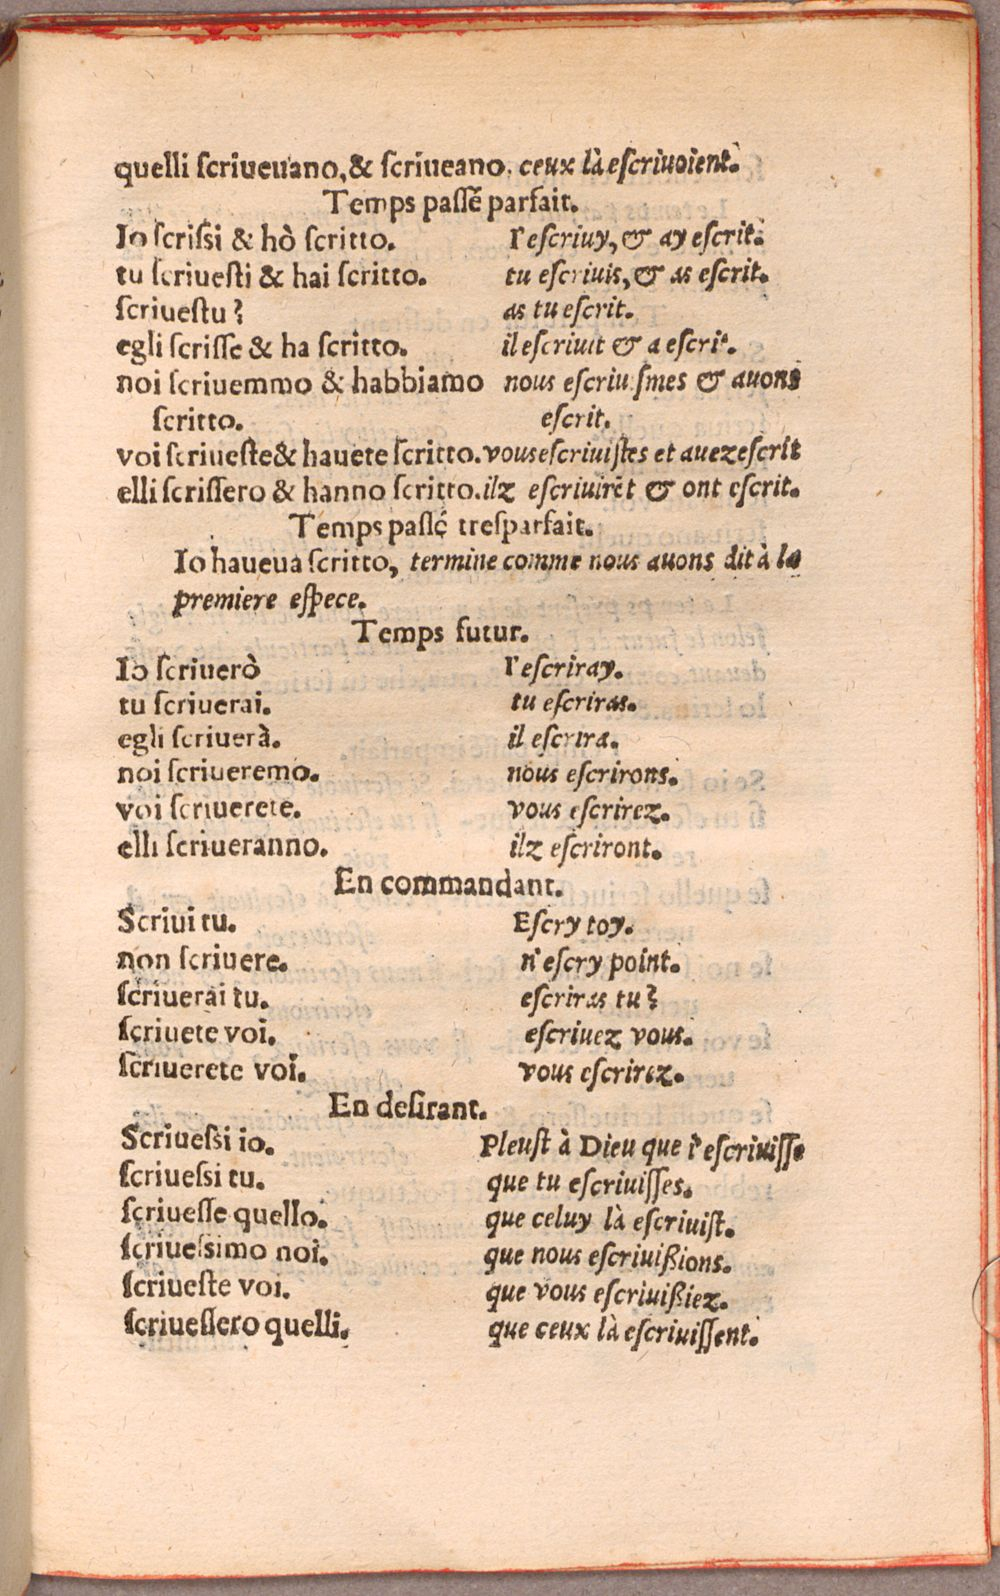 quelli ſcriueuano, & ſcriueano. ceux là eſcriuoient.
Temps paſſẽ parfait.
Io ſcriſsi & hò ſcritto. I'eſcriuy, & ay eſcrit.
tu ſcriueſti & hai ſcritto. tu eſcriuis, & as eſcrit.
ſcriueſtu? as tu eſcrit.
egli ſcriſſe & ha ſcritto. il eſcriuit & a eſcrit.
noi ſcriuemmo & habbiamo nous eſcriuiſmes & auons
ſcritto. eſcrit.
voi ſcriueſte & hauete ſcritto. vous eſcriuiſtes et auez eſcrit
elli ſcriſſero & hanno ſcritto. ilz eſcriuirẽt & ont eſcrit.
Temps paſſé treſparfait.
Io haueua ſcritto, termine comme nous auons dit à la
premiere eſpece.
Temps futur.
Io ſcriuerò I'eſcriray.
tu ſcriuerai. tu eſcriras.
egli ſcriuerà. il eſcrira.
noi ſcriueremo. nous eſcrirons.
voi ſcriuerete. vous eſcrirez.
elli ſcriueranno. ilz eſcriront.
En commandant.
Scriui tu. Eſcry toy.
non ſcriuere. n'eſcry point.
ſcriuerai tu. eſcriras tu?
ſcriuete voi. eſcriuez vous.
ſcriuerete voi. vous eſcrirez.
En deſirant.
Scriueſsi io. Pleuſt à Dieu que i'eſcriuiſſe
ſcriueſsi tu. que tu eſcriuiſſes.
ſcriueſſe quello. que celuy là eſcriuiſt.
ſcriueſsimo noi. que nous eſcriuißions.
ſcriueſte voi. que vous eſcriuißiez.
ſcriueſſero quelli. que ceux là eſcriuiſſent.